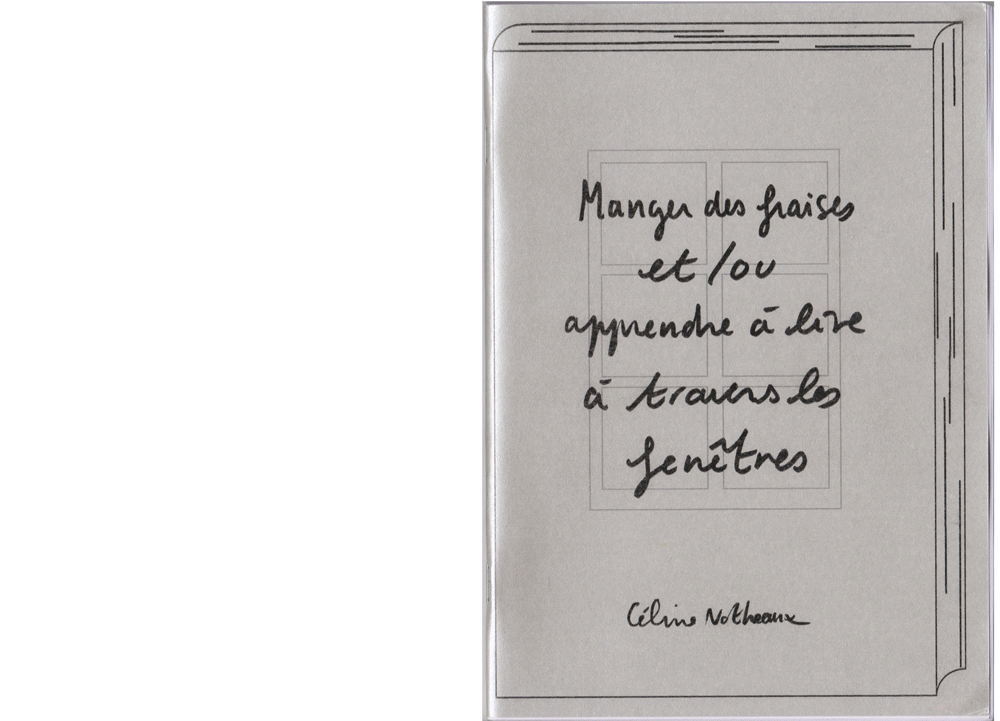 Manger des fraises
et/ou
apprendre à lire
à travers les
fenêtres
Céline Notheaux